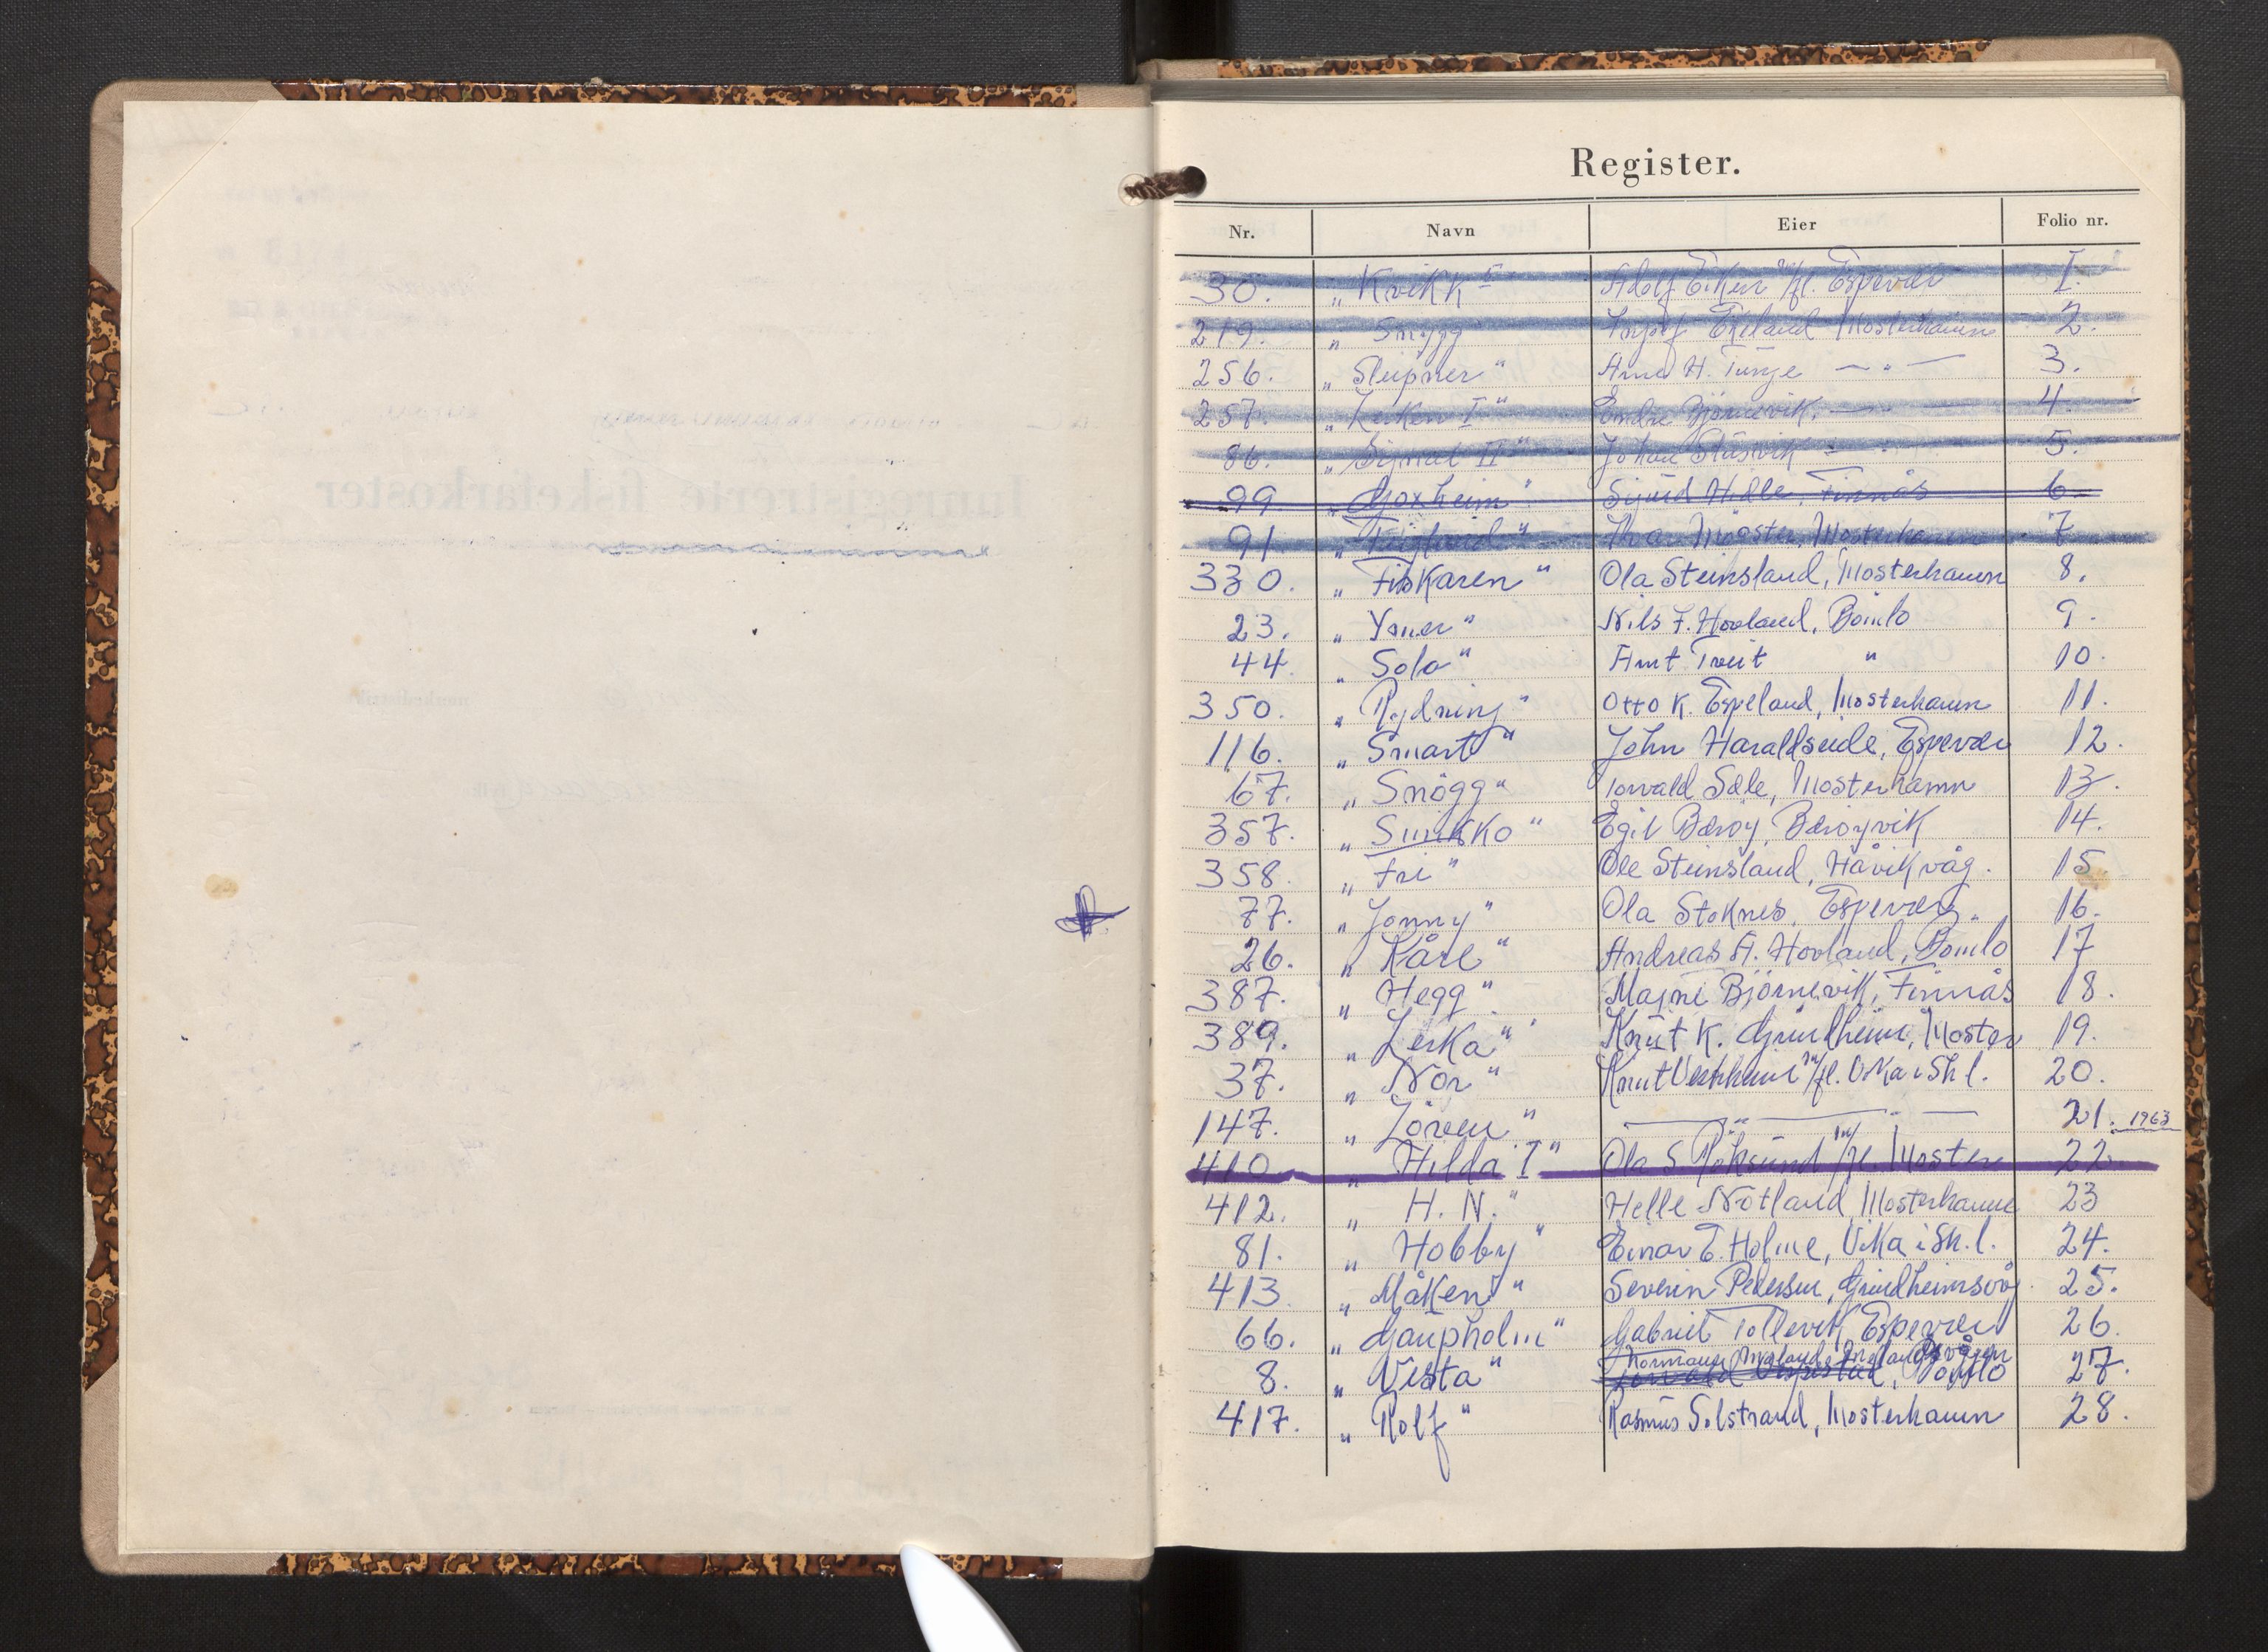 Register.
Nr. Navn Eier Folio nr.
30. „ Kvikk I" Adolf Eiken m/fl. Espevær I.
219. „ Snygg" Espeland Mosterhamn 2.
256. „ Sleipner" Arne H. Tunge — „ — 3.
257. „ Lerken I" Endre Bjørnevik. — „ — 4.
86. „ Signal II" Johan — „ — 5.
99 „ Goxheim" Sigurd Hille, Finnås 6.
91 „ Mögster, Mosterhamn 7
330. „ Fiskaren" Ola Steinsland, Mosterhamn 8.
23. „ Ymer" Nils F. Hovland, Bömlo 9.
44. „ Sola" Amt Treit " 10.
350. „ Rydning" Otto K. Espeland, Mosterhamn 11.
116. „ Smart" John Haraldseide, Espevær 12.
67. „ Snögg" Torvald Sæle, Mosterhamn 13.
357. „ Sunkko" Egil Bæröy, Bæröyvik 14.
358. „ Fri" Ole Steinsland, Håvikvåg. 15
77. „ Jonny" Ola Stoknes, Espevær. 16.
26. „ Kåre" Andreas A. Hovland, Bömlo 17
387. „ Hegg" Magne Björnevik, Finnås 18.
389. „ Lerka" Knut K. Grindheim, Moster 19.
37. „ Nor" Knut Vestheim m/fl. Vika i Sh l. 20.
147. „ Löven" — „ — „ — 21. 1963
410 „ Hilda I" Ola S. Röksund m/fl. Moster 22.
412. „ H. N." Helle Notland, Mosterhamn 23
81. „ Hobby" Einar E. Holme, Vika i Sh. l. 24.
413 „ Måken" Severin Pedersen, Grindheimsvåg. 25.
66. „ Gaupholm" Gabriel Tollevik, Espevær 26.
Normann
8. „ Vesta" Torvald Vespestad, Bömlo 27.
417. „ Rolf" Rasmus Solstrand, Mosterhamn 28.